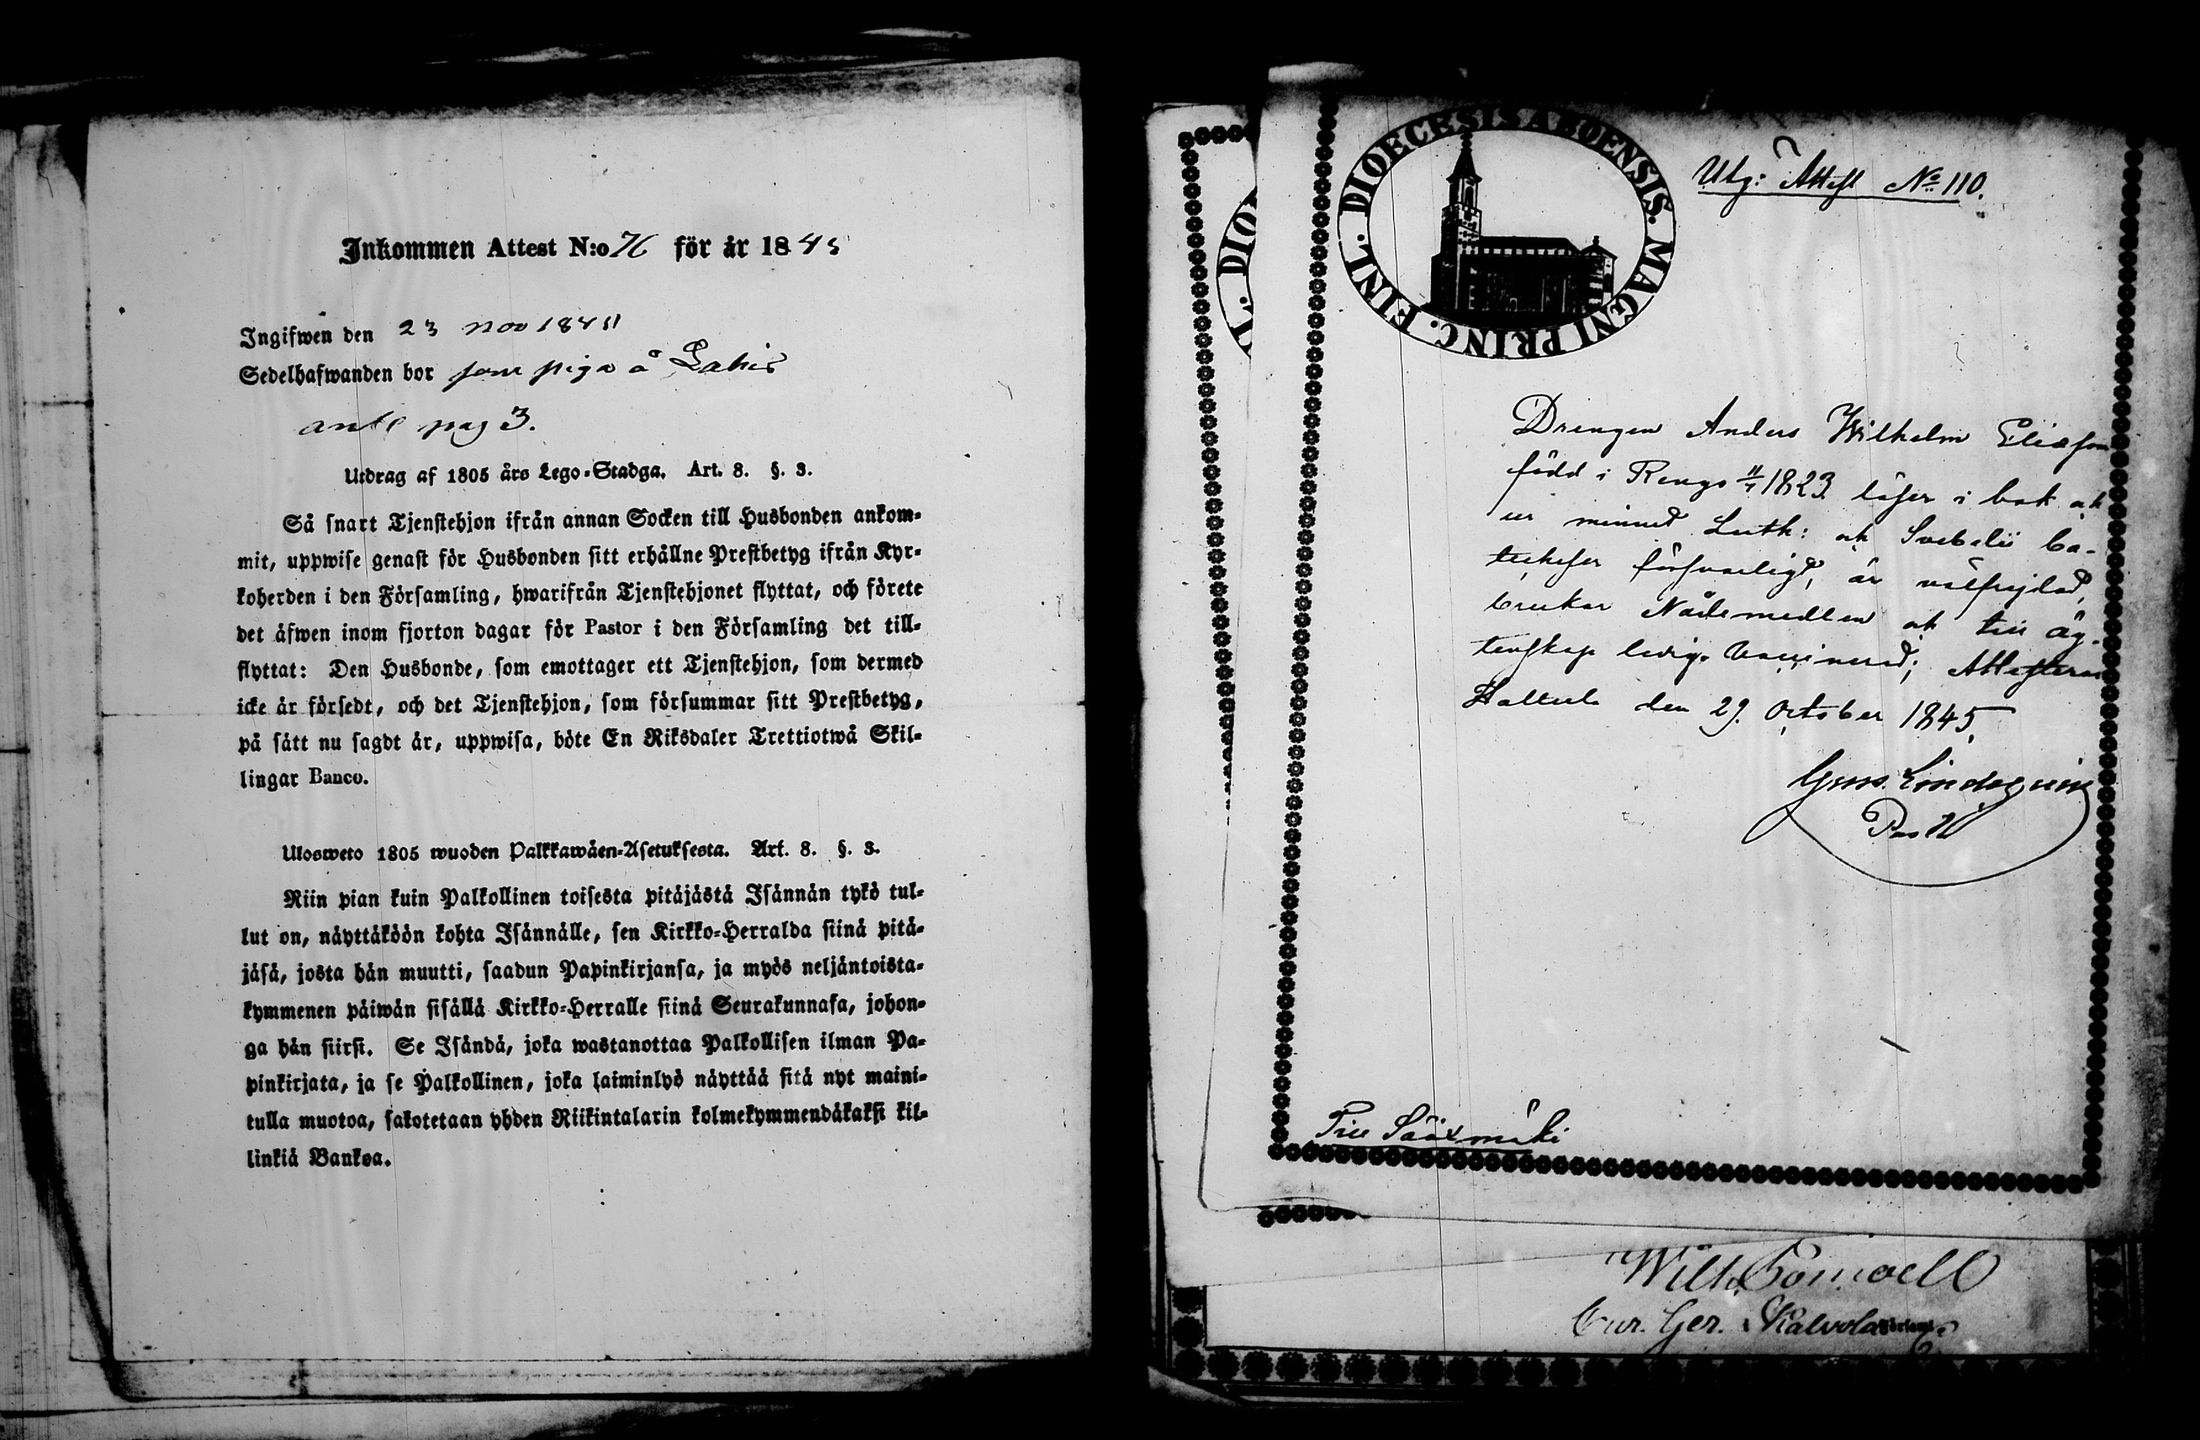 Inkommen Attest N:o 76 för år 1845
Ingifwen den 23 nov 1845
Sedelhafwanden bor som piga å Lahis
ant pag 3.
Utdrag af 1805 års Lego-Stadga. Art. 8. §. 3.
Så snart Tjenstehjon ifrån annan Socken till Husbonden ankom-
mit, uppwise genast för Husbonden sitt erhållne Prestbetyg ifrån Kyr-
koherden i den Församling, hwarifrån Tjenstehjonet flyttat, och förete
det äfwen inom fjorton dagar för Pastor i den Församling det till-
flyttat: Den Husbonde, som emottager ett Tjenstehjon, som dermed
icke är försedt, och det Tjenstehjon, som försummar sitt Prestbetyg,
på sätt nu sagdt är, uppwisa, böte En Riksdaler Trettiotwå Skil-
lingar Banco.
Ulosweto 1805 wuoden Palkkawäen-Asetuksesta. Art. 8. §. 3.
Niin pian kuin Palkollinen toisesta pitäjästä Isännän tykö tul-
lut on, näyttäköön kohta Isännälle, sen Kirkko-Herralda siinä pitä-
jäsä, josta hän muutti, saadun Papinkirjansa, ja myös neljäntoista-
kymmenen päiwän sisällä Kirkko-Herralle siinä Seurakunnasa, johon-
ga hän siirsi. Se Isändä, joka wastanottaa Palkollisen ilman Pa-
pinkirjata, ja se Palkollinen, joka laiminlyö näyttää sitä nyt maini-
tulla muotoa, sakotetaan yhden Riikintalarin kolmekymmendäkaksi kil-
linkiä Bankoa.
DIOECESIS ABOENSIS. MAGNI PRINC. FINL.
Utg: Attest No 110.
Drengen Anders Wilhelm Eliasson
född i Rengo 11/1 1823 läser i bok och
ur minnet Luth: och Svebelii Ca-
techeser försvarligt, är välfrejdad,
brukar Nådemedlen och till äg-
tenskap ledig. Vaccinerad; Attesteras
Hattula den 29. October 1845.
Past
Till Sääxmäki
Wilh.
Cur. Ger. i Kalvola